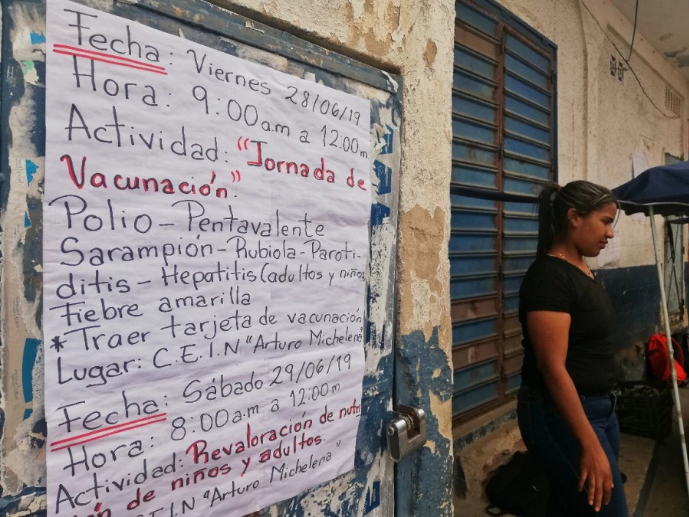 Fecha: Viernes 28/06/19
Hora: 9:00am a 12:00m
Actividad: "Jornada de
Vacunación"
Polio - Pentavalente
Sarampión - Rubiola - Paroti-
ditis - Hepatitis (adultos y niños
Fiebre amarilla
*Traer tarjeta de vacunación
Lugar: C.E.I.N "Arturo Michelena"
Fecha: Sábado 29/06/19
Hora: 8:00 a.m a 12:00m
Actividad: Revaloración de nutri
de niños y adultos
"Arturo Michelena"